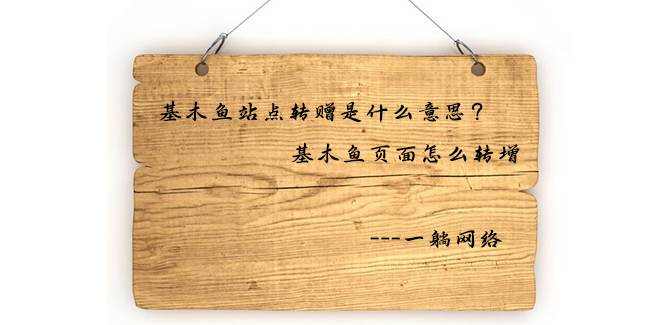 基木鱼站点转赠是什么意思？
基木鱼页面怎么转增
---一躺网络